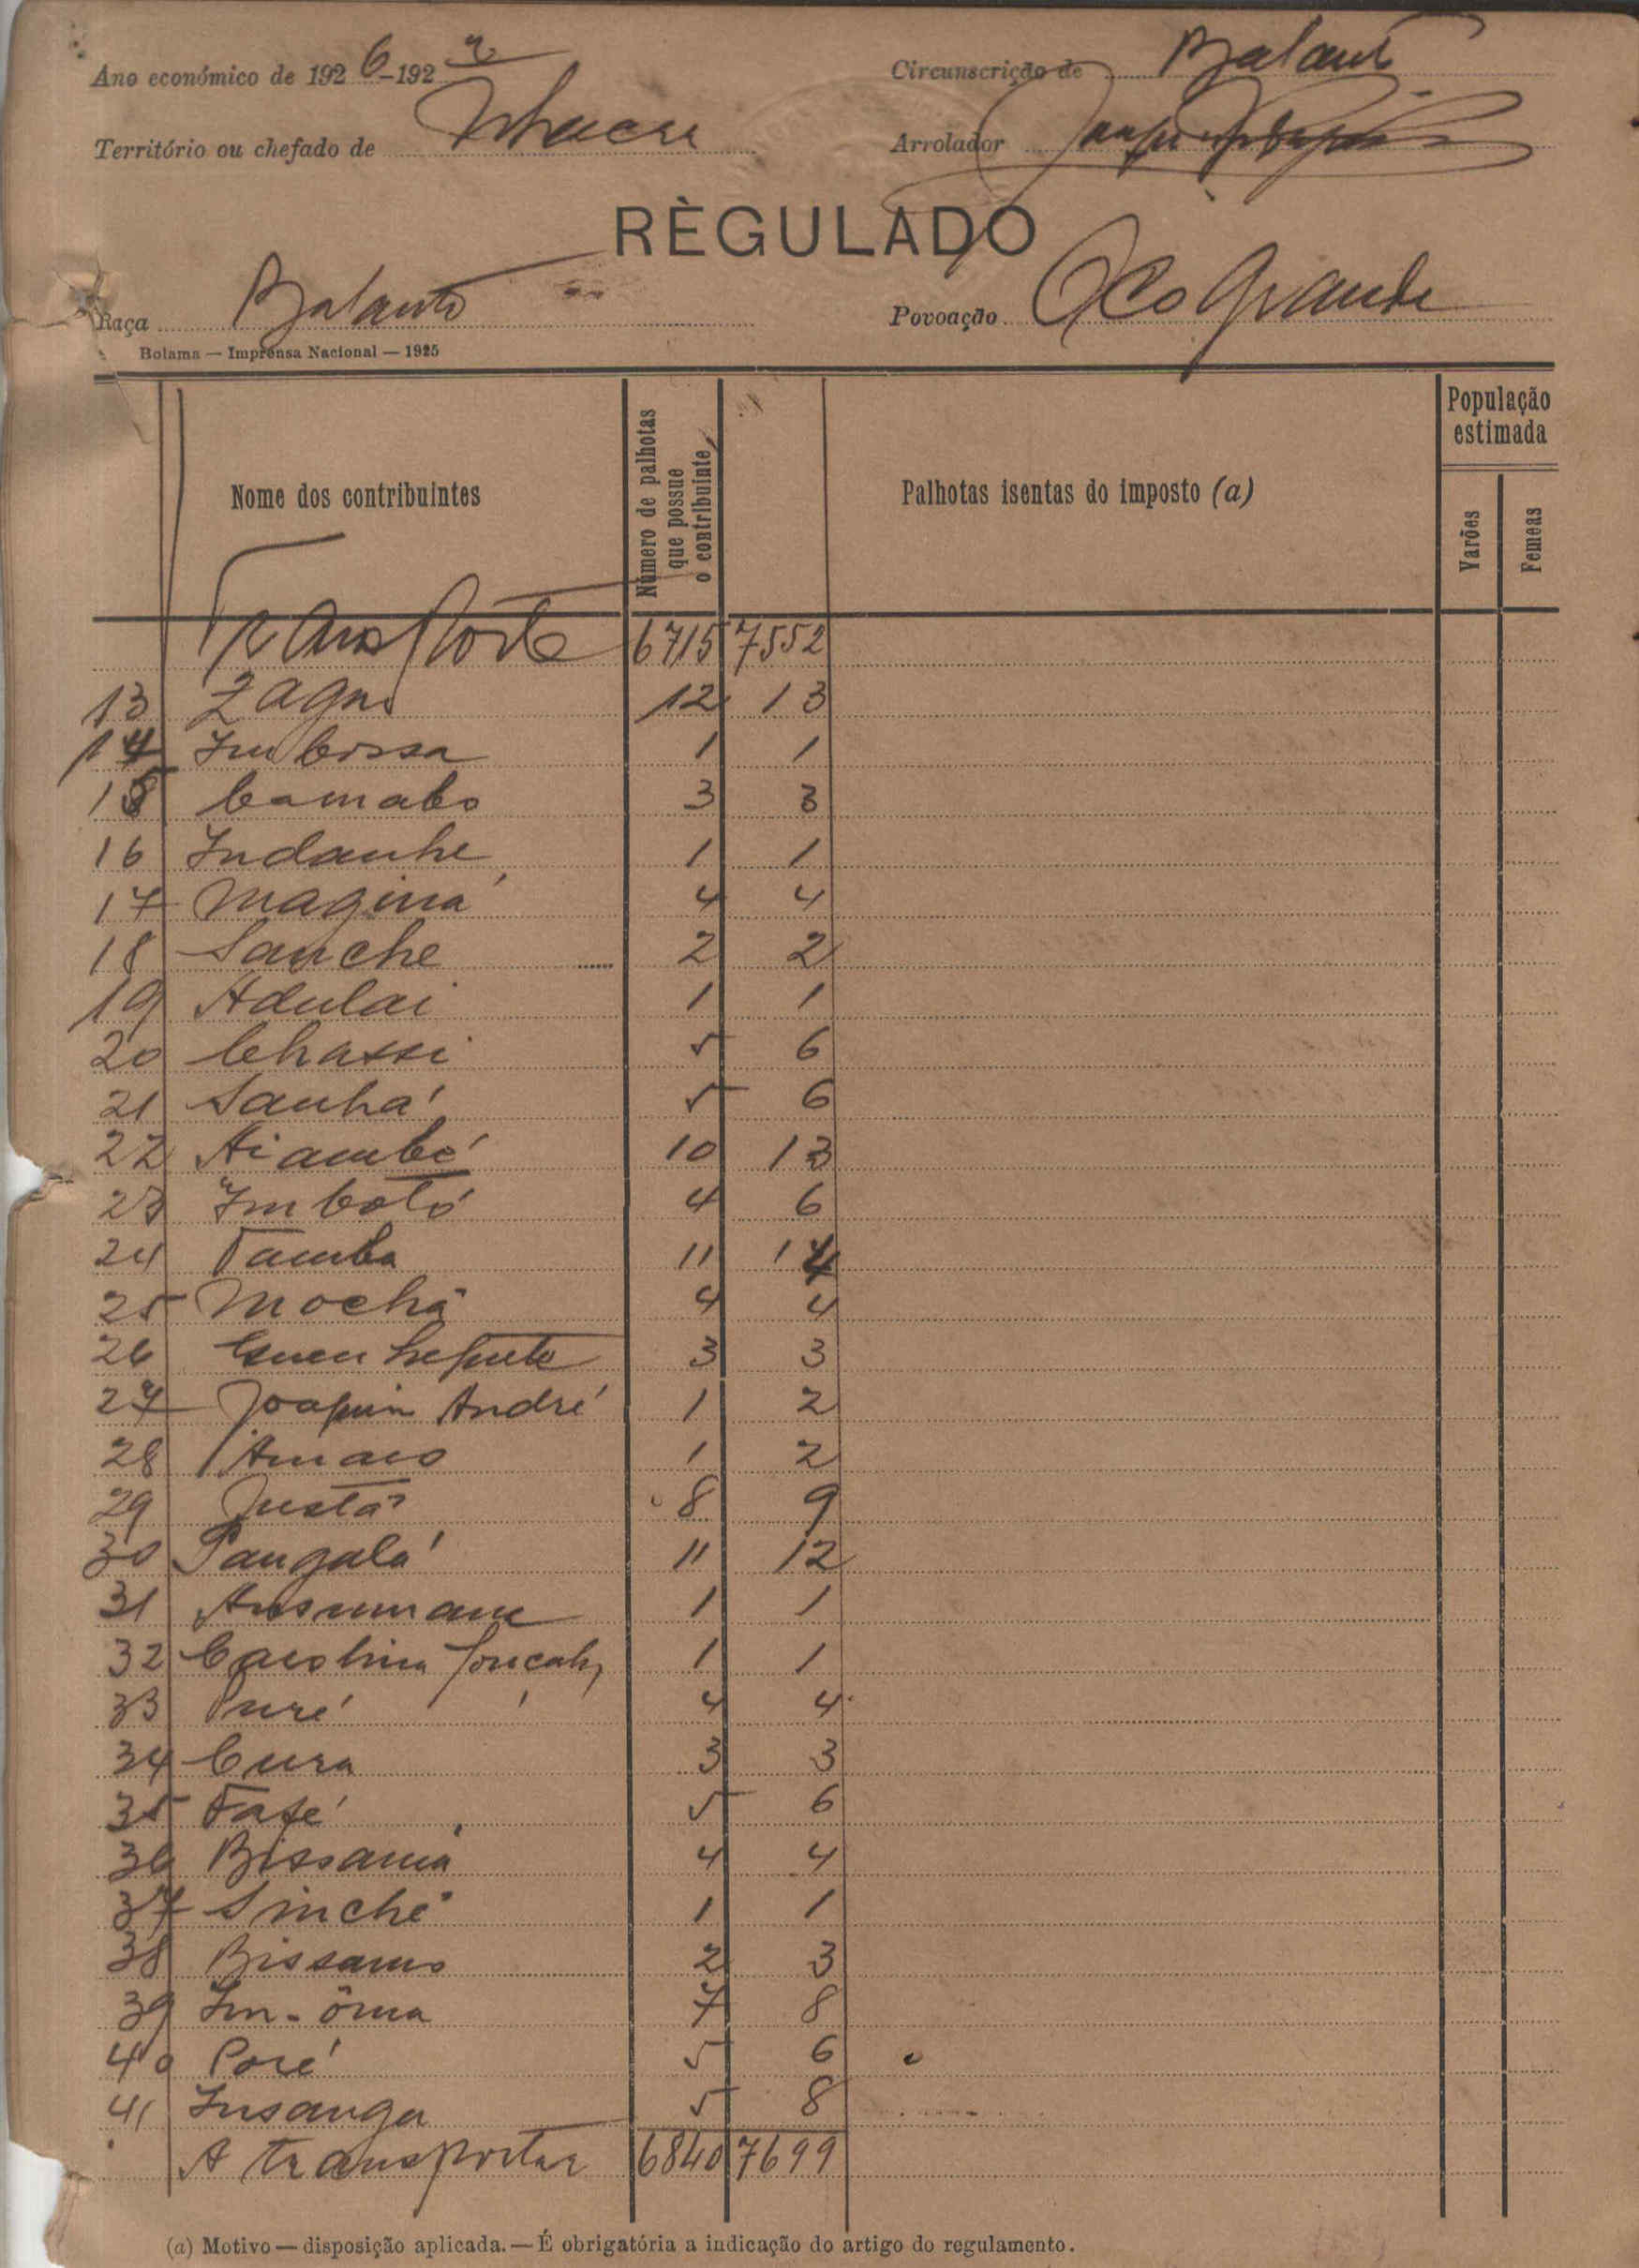 Ano económico de 1926-192
Circunscrição de
Território ou chefado de
Arrolador
RÈGULADO
Raça Balanta
Povoação Oco Grande
Bolama — Imprensa Nacional — 1925
Nome dos contribuintes
Número de palhotas que possue o contribuinte
Palhotas isentas do imposto (a)
População estimada
Varões
Femeas
Transporte 6715 7552
13 Zagno 12 13
14 Imbossa 1 1
15 Camabo 3 3
16 Indanhe 1 1
17 Maginá 4 4
18 Sanche 2 2
19 Adulai 1 1
20 Chassi 5 6
21 Sanhá 5 6
22 Aiambé 10 13
23 Imbotó 4 6
24 Tamba 11 14
25 Mochã 4 4
26 3 3
27 Joaquim André 1 2
28 1 2
29 Justã 8 9
30 Pangalá 11 12
31 Ansumane 1 1
32 Carolina Gonçalves 1 1
33 Puré 4 4
34 Cura 3 3
35 Fafé 5 6
36 Bissaniá 4 4
37 Sinché 1 1
38 2 3
39 Im-ôma 7 8
40 Poré 5 6
41 Insanga 5 8
A transportar 6840 7699
(a) Motivo — disposição aplicada. — É obrigatória a indicação do artigo do regulamento.